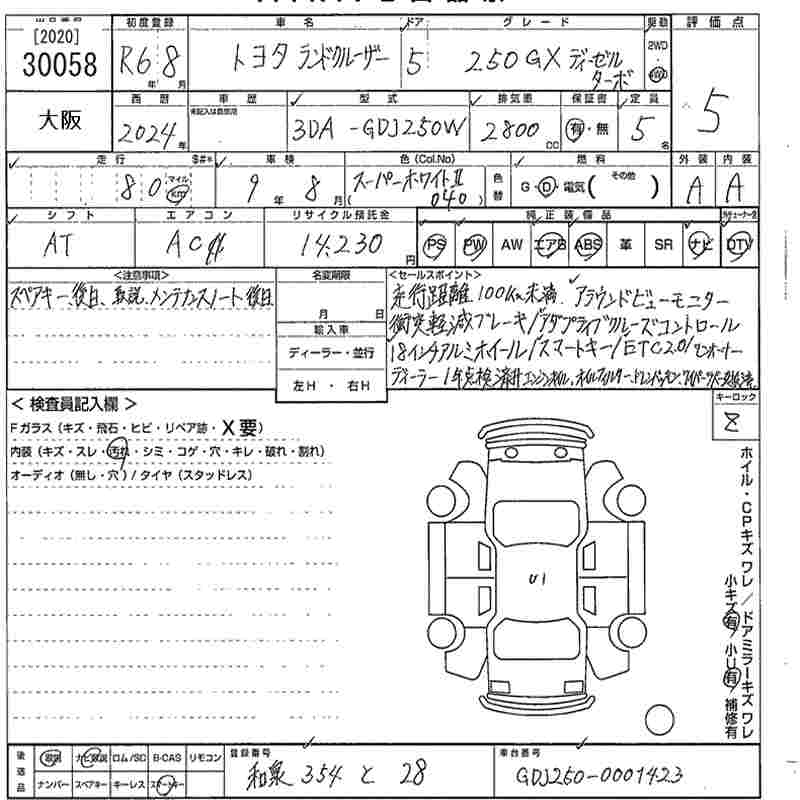 [2020]
初度登録
車名
ドア
グレード
駆動
評価点
30058
R6 年 8 月
トヨタ ランドクルーザー
5
250 GX ディーゼルターボ
2WD
4WD
5
大阪
西暦
車歴
型式
排気量
保証書
定員
2024年
未記入は自家用
3DA-GDJ250W
2800 CC
有・無
5 名
走行
車検
色(Col.No)
色替
燃料
外装
内装
80
マイル
Km
9 年 8 月
スーパーホワイトⅡ
(040)
G・D・電気( その他 )
A
A
シフト
エアコン
リサイクル預託金
純正装備品
AT
AC
14,230 円
PS
PW
AW
エアB
ABS
革
SR
ナビ
DTV
<注意事項>
名変期限
<セールスポイント>
スペアキー後日、取説、メンテナンスノート後日
月 日
輸入車
ディーラー・並行
左H・右H
走行距離100Km未満、アラウンドビューモニター
衝突軽減ブレーキ/アダプティブクルーズコントロール
18インチアルミホイール/スマートキー/ETC2.0/ワンオーナー
ディーラー1年点検済
<検査員記入欄>
キーロック
Fガラス(キズ・飛石・ヒビ・リペア跡・X要)
内装(キズ・スレ・汚れ・シミ・コゲ・穴・キレ・破れ・割れ)
オーディオ(無し・穴)/タイヤ(スタッドレス)
U1
ホイル・CPキズ ワレ/ドアミラーキズ ワレ
小キズ有 小U有 補修有
後送品
取説
ナビ取説
ロム/SD
B-CAS
リモコン
ナンバー
スペアキー
キーレス
スマートキー
登録番号
和泉 354 と 28
車台番号
GDJ250-0001423